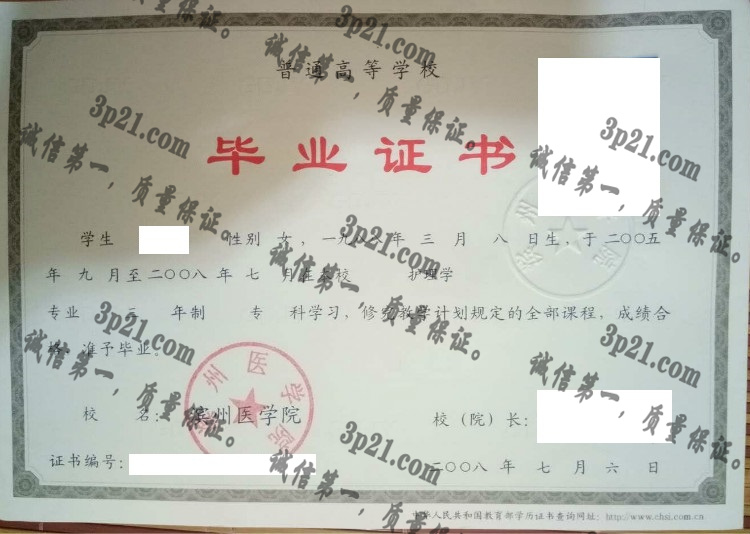 普通高等学校
毕业证书
学生 性别 女，一九八八年 三 月 八 日生，于 二〇〇五
年 九 月至二〇〇八 年 七 月在本校 护理学
专业 三 年制 专 科学习，修完教学计划规定的全部课程，成绩合
格，准予毕业。
校 名：滨州医学院
校（院）长：
证书编号：
二〇〇八 年 七 月 六 日
中华人民共和国教育部学历证书查询网址：http://www.chsi.com.cn
滨州医学院
3p21.com
诚信第一，质量保证。
3p21.com
诚信第一，质量保证。
3p21.com
诚信第一，质量保证。
3p21.com
诚信第一，质量保证。
3p21.com
诚信第一，质量保证。
3p21.com
诚信第一，质量保证。
3p21.com
诚信第一，质量保证。
3p21.com
诚信第一，质量保证。